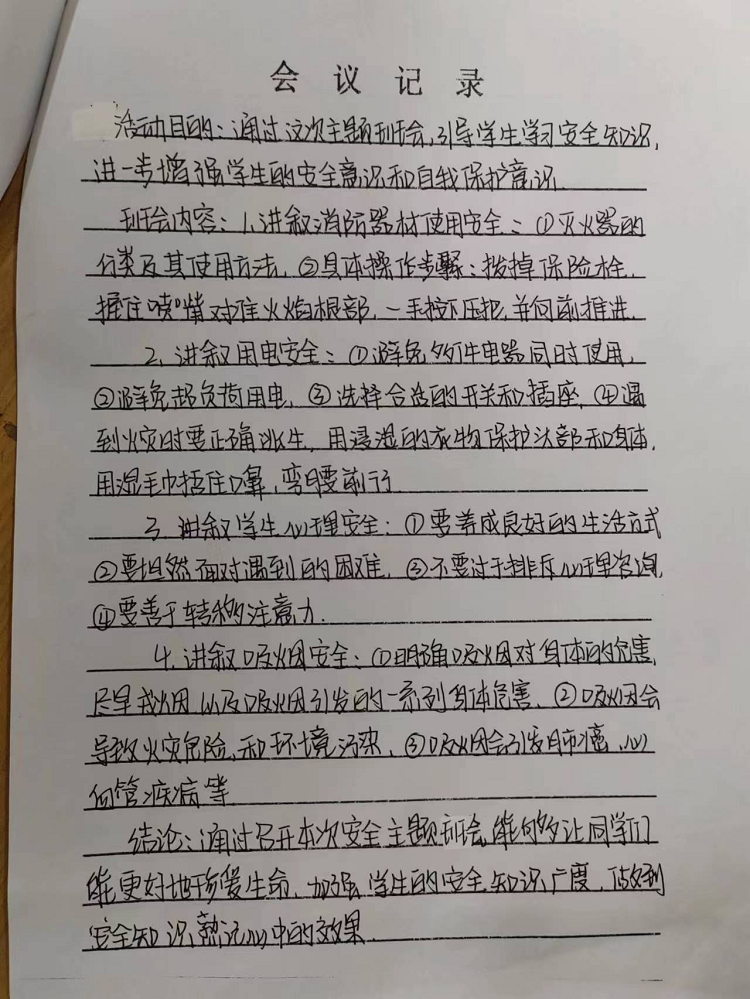 会议记录
活动目的：通过这次主题班会，引导学生学习安全知识，
进一步增强学生的安全意识和自我保护意识
班会内容：1.讲叙消防器材使用安全：①灭火器的
分类及其使用方法，②具体操作步骤：拨掉保险栓，
握住喷嘴对准火焰根部，一手按下压把，并向前推进.
2.讲叙用电安全：①避免多件电器同时使用，
②避免超负荷用电，③选择合适的开关和插座，④遇
到火灾时要正确逃生，用浸湿的衣物保护头部和身体，
用湿毛巾捂住口鼻，弯腰前行
3.讲叙学生心理安全：①要养成良好的生活方式
②要坦然面对遇到的困难，③不要过于排斥心理咨询，
④要善于转移注意力.
4.讲叙吸烟安全：①明确吸烟对身体的危害，
尽早戒烟以及吸烟引发的一系列身体危害，②吸烟会
导致火灾危险，和环境污染，③吸烟会引发肺癌，心
血管疾病等
结论：通过召开本次安全主题班会，能够让同学们
能更好地珍爱生命，加强学生的安全知识广度，做到
安全知识熟记心中的效果.